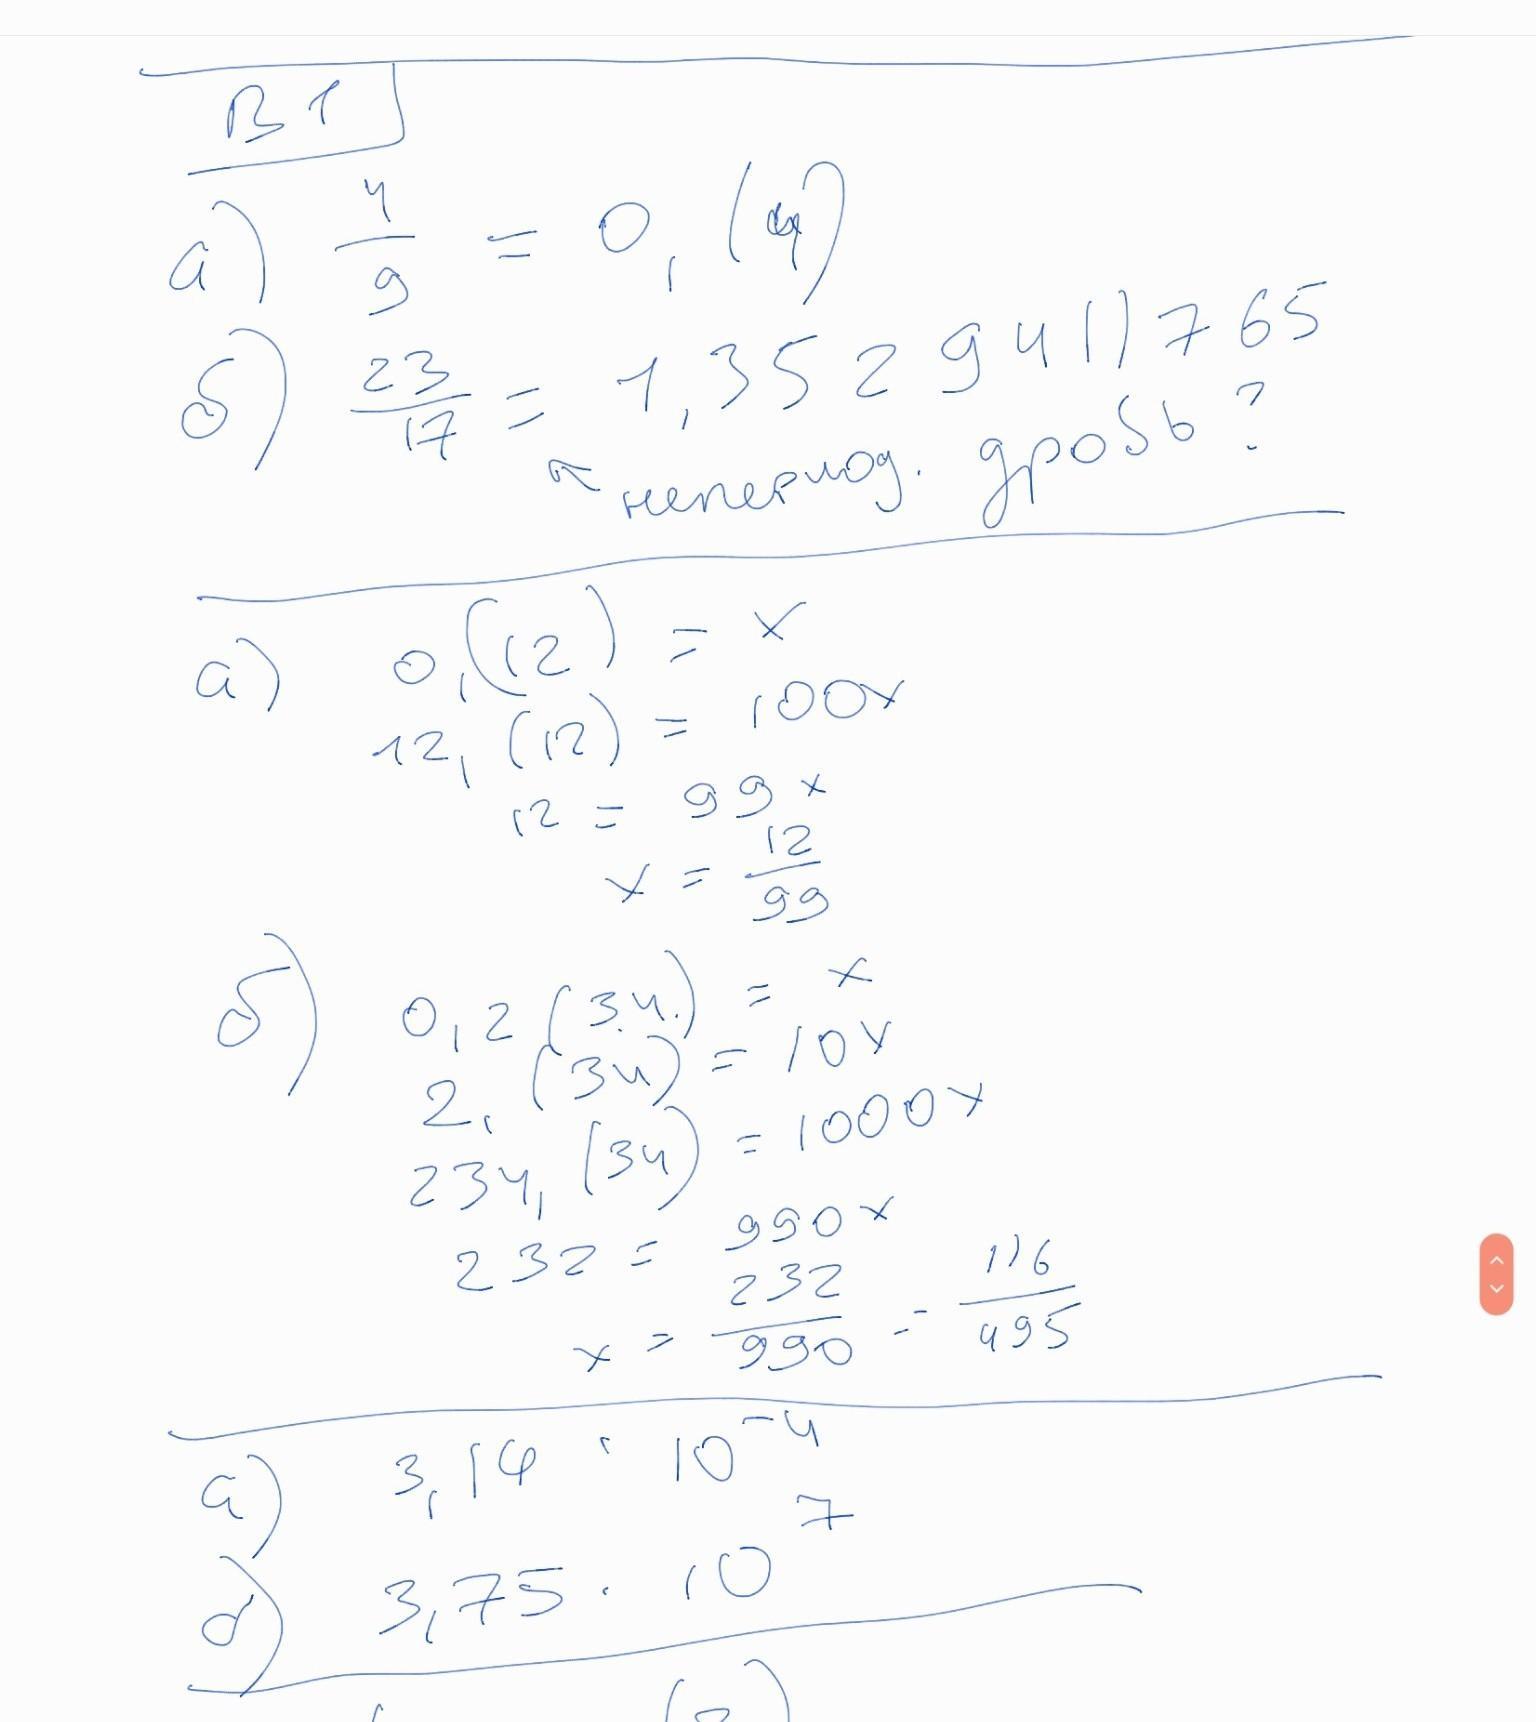 В 1
а) 4/9 = 0,(4)
б) 23/17 = 1,3529411765
непериод. дробь?
а) 0,(12) = x
12,(12) = 100x
12 = 99x
x = 12/99
б) 0,2(34) = x
2,(34) = 10x
234,(34) = 1000x
232 = 990x
x = 232/990 = 116/495
а) 3,14 · 10^-4
б) 3,75 · 10^7